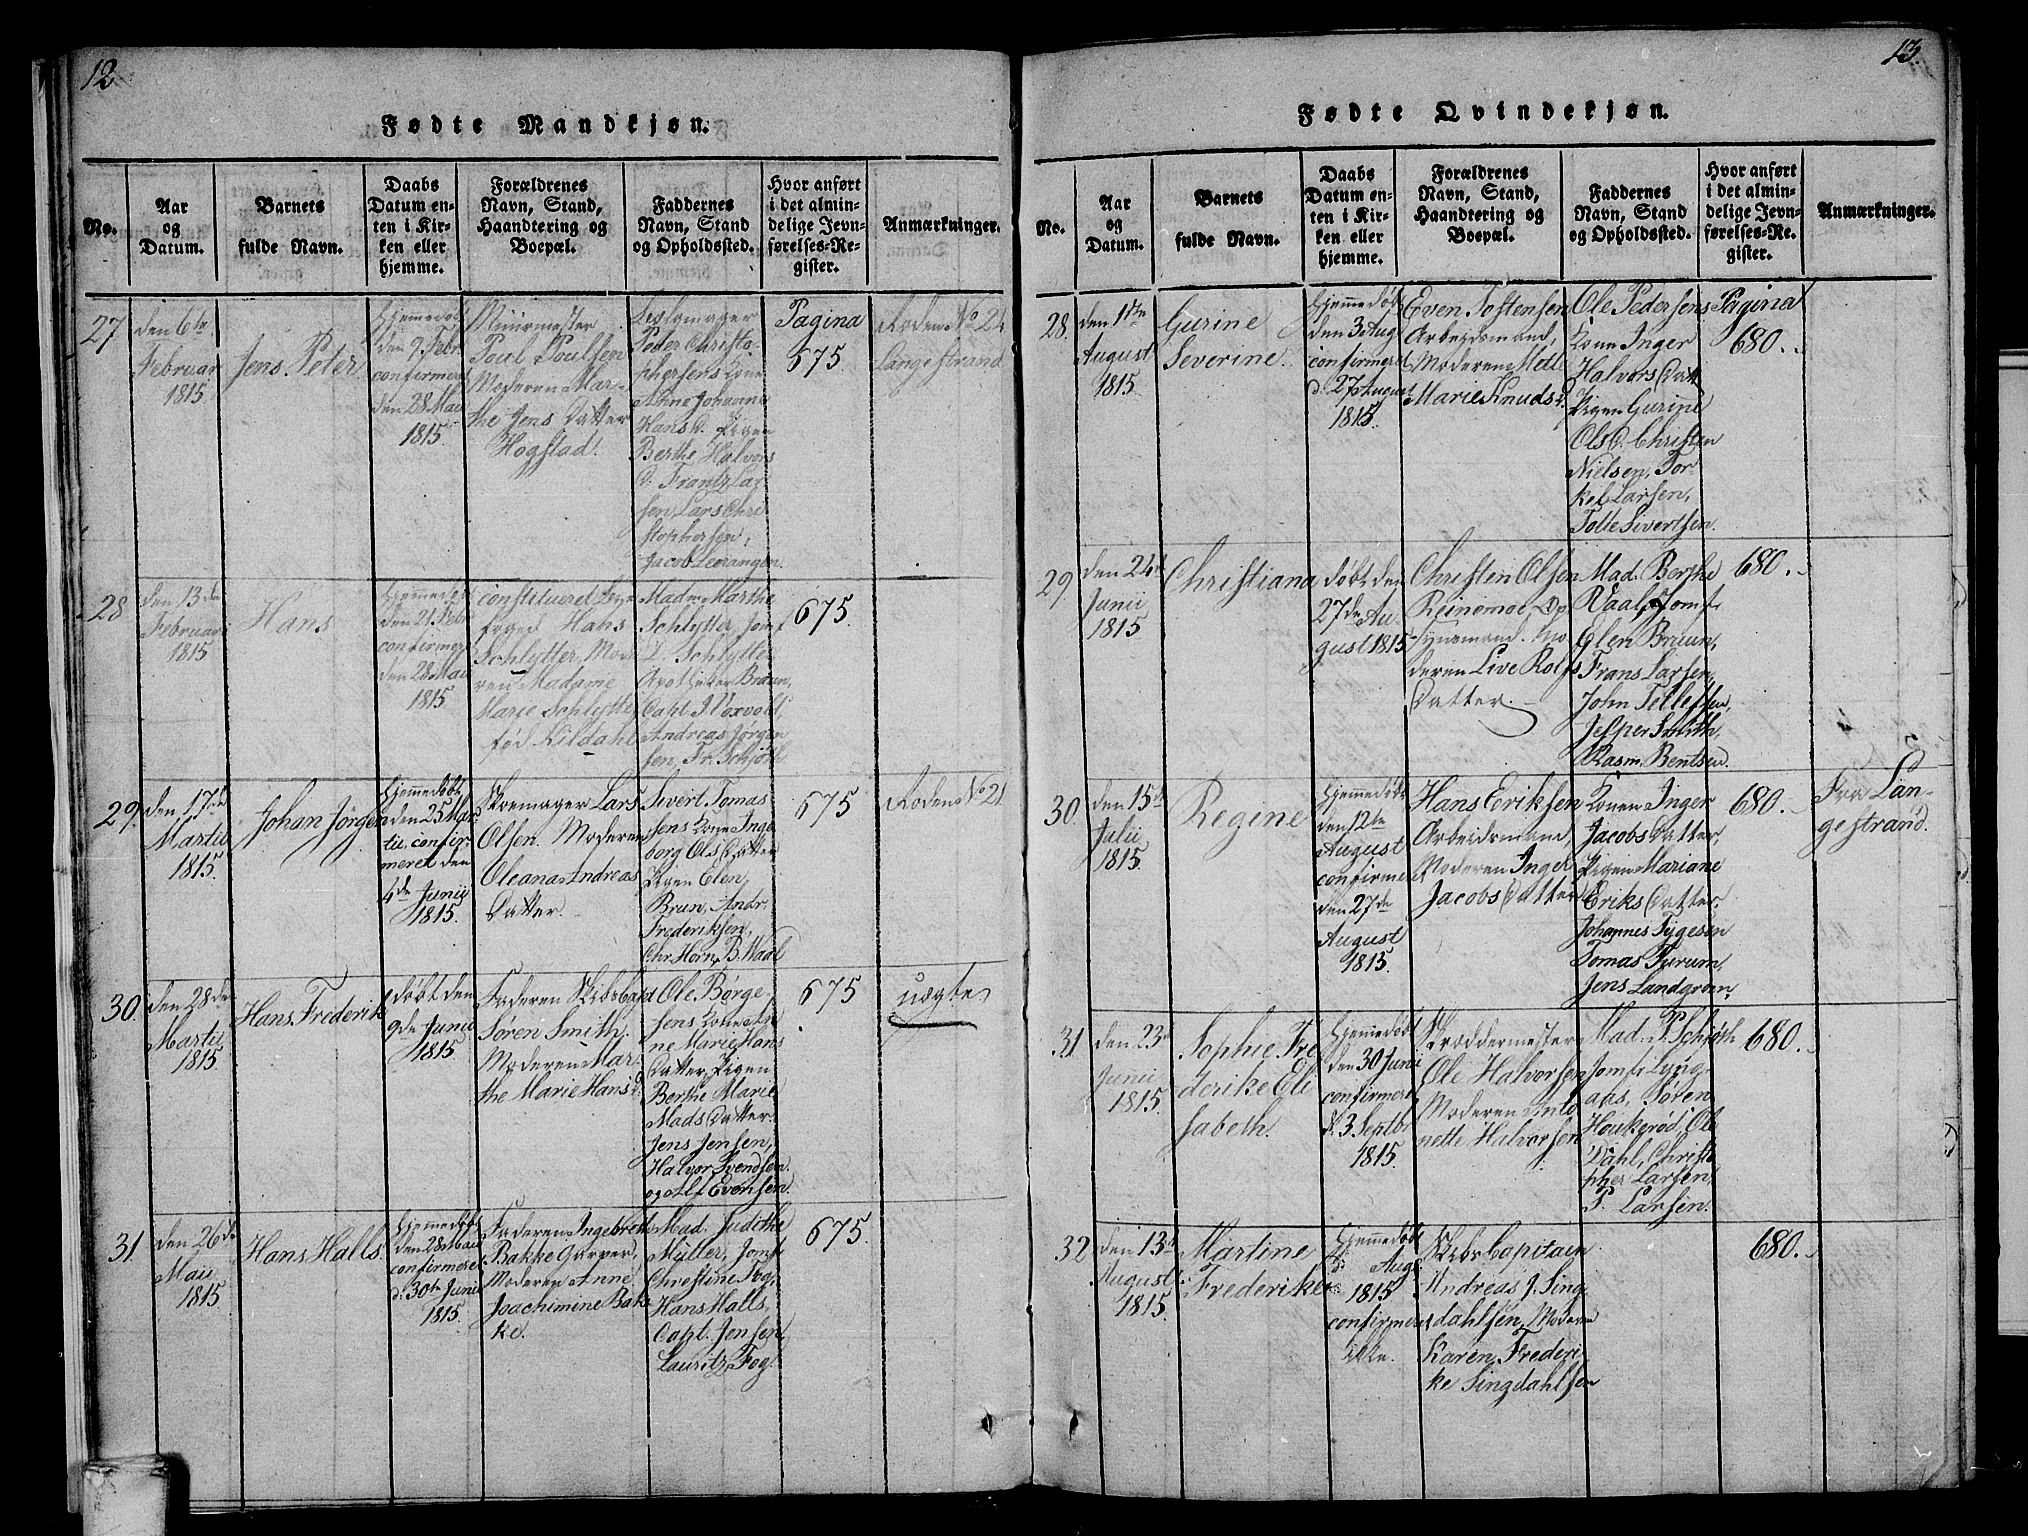 12
Fødte Mandkjøn.
No.
Aar
og
Datum.
Barnets
fulde Navn.
Daabs
Datum en-
ten i Kir-
ken eller
hjemme.
Forældrenes
Navn, Stand,
Haandtering og
Boepæl.
Faddernes
Navn, Stand
og Opholdssted.
Hvor anført
i det almin-
delige Jevn-
førelses-Re-
gister.
Anmærkninger.
27
den 6te
Februar
1815
Jens Peter
Hjemedøbt
den 9 Febr
confirmeret
den 28 Mai
1815.
Muurmester
Poul Poulsen
Moderen Mar-
the Jens Datter
Hogstad.
Peder Christo-
phersens Kone
Anne Johanne
Hans D. Pigen
Berthe Halvors
D. Frantz Lar-
sen, Lars Chri
stophersen,
Jacob Leerangen.
Pagina
675.
Roden No 24
Langestrand
28
den 13de
Februar
1815
Hans
Hjemedøbt
den 21 Febr
confirmeret
den 28 Mai
1815
constitueret
foged Hans
Schlytter, Mode
ren Madame
Marie Schlytter
fød Kildahl
Madm Marthe
Schlytter, Jomf
D. Schlytter
Apotheker Bruun,
Capt. P. Voxvold,
Andreas Jørgen
sen, Fr. Schjøth
675.
29.
den 17de
Martii
1815.
Johan Jørgen
Hjemmedøbt
den 25 Mar-
tii, confir-
meret den
4de Junii
1815.
Skomager Lars
Olsen. Moderen
Oleana Andreas
Datter.
Sivert Tomas
sens Kone Inge
borg Ols Datter
Pigen Elen
Brun, Andr.
Frederiksen,
Chr. Horn, B. Waal
675
Roden No 21
30.
den 28de
Martii
1815.
Hans Frederik
døbt den
9de Junii
1815
Faderen Skibscapt
Søren Smith.
Moderen Mar
the Marie Hans D.
Ole Børge
sens Kone An
ne Marie Hans
Datter, Pigen
Berthe Marie
Mads Datter.
Jens Jensen,
Halvor Svendsen.
og Alf Evensen.
675
uægte
31
den 26de
Maii
1815
Hans Halls.
Hjemedøbt
den 28 Maii
confirmeret
d. 30te Junii
1815.
Faderen Ingebreth
Bakke Garver,
Moderen Anne
Joachimine Bak
ke.
Mad. Judithe
Müller, Jomf
Christine Fog,
Hans Halls,
Capt. Jensen,
Lauritz Fog.
675.
13.
Fødte Qvindekjøn.
No.
Aar
og
Datum.
Barnets
fulde Navn.
Daabs
Datum en-
ten i Kir-
ken eller
hjemme.
Forældrenes
Navn, Stand,
Haandtering og
Boepæl.
Faddernes
Navn, Stand
og Opholdssted.
Hvor anført
i det almin-
delige Jevn-
førelses-Re-
gister.
Anmærkninger.
28.
den 1ste
August
1815
Gurine
Severine
Hjemmedøbt
den 3 Aug
confirmeret
d. 27 August
1815.
Even Tostensen
Arbeidsmand,
Moderen Mette
Marie Knuds D.
Ole Pedersens
Kone Inger
Halvors Datt
Pigen Gurine
Ols D. Christen
Nielsen, Tor-
kel Larsen,
Tolle Sivertsen.
Pagina
680.
29
den 24de
Junii
1815
Christiana
døbt den
27de Au-
gust 1815
Christen Olsen
Reinemoe Op
synsmand. Mo
deren Live Rolfs
Datter.
Mad. Berthe
Vaal, Jomf
Elen Bruun,
Frans Larsen,
John Tellefsen,
Jesper Smith,
Rasm. Bentsen.
680.
30.
den 15de
Julii
1815.
Regine
Hjemmedøbt
den 12te
August
confirmeret
den 27de
August
1815.
Hans Eriksen
Arbeidsmand,
Moderen Inger
Jacobs Datter
Konen Inger
Jacobs Datter,
Pigen Mariane
Eriks Datter.
Johannes Tygesen
Tomas Furum,
Jens Landgrøn.
680.
Fra Lan-
gestrand.
31
den 23de
Junii
1815.
Sophie Fre
derike Eli
sabeth.
Hjemmedøbt
den 30 Juni
confirmeret
d. 3 Septbr
1815.
Skræddermester
Ole Halvorsen
Moderen Anto
nette Halvorsen
Mad. P. Schiøth
Jomf. Lyng-
aas, Søren
Houkerød, Ole
Dahl, Christo
pher Larsen,
P. Larsen.
680.
32
den 13de
August
1815.
Martine
Frederike
Hjemmedøbt
d. Aug.
1815
confirmeret
ikke.
Skibs Capitain
Andreas J. Sing
dahlsen, Moderen
Karen Frederi
ke Singdahlsen
680.